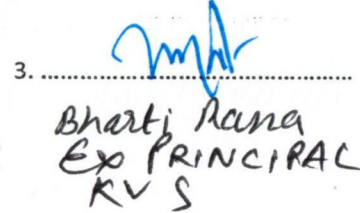 3. ........................................
Bharti Rana
Ex PRINCIPAL
KVS